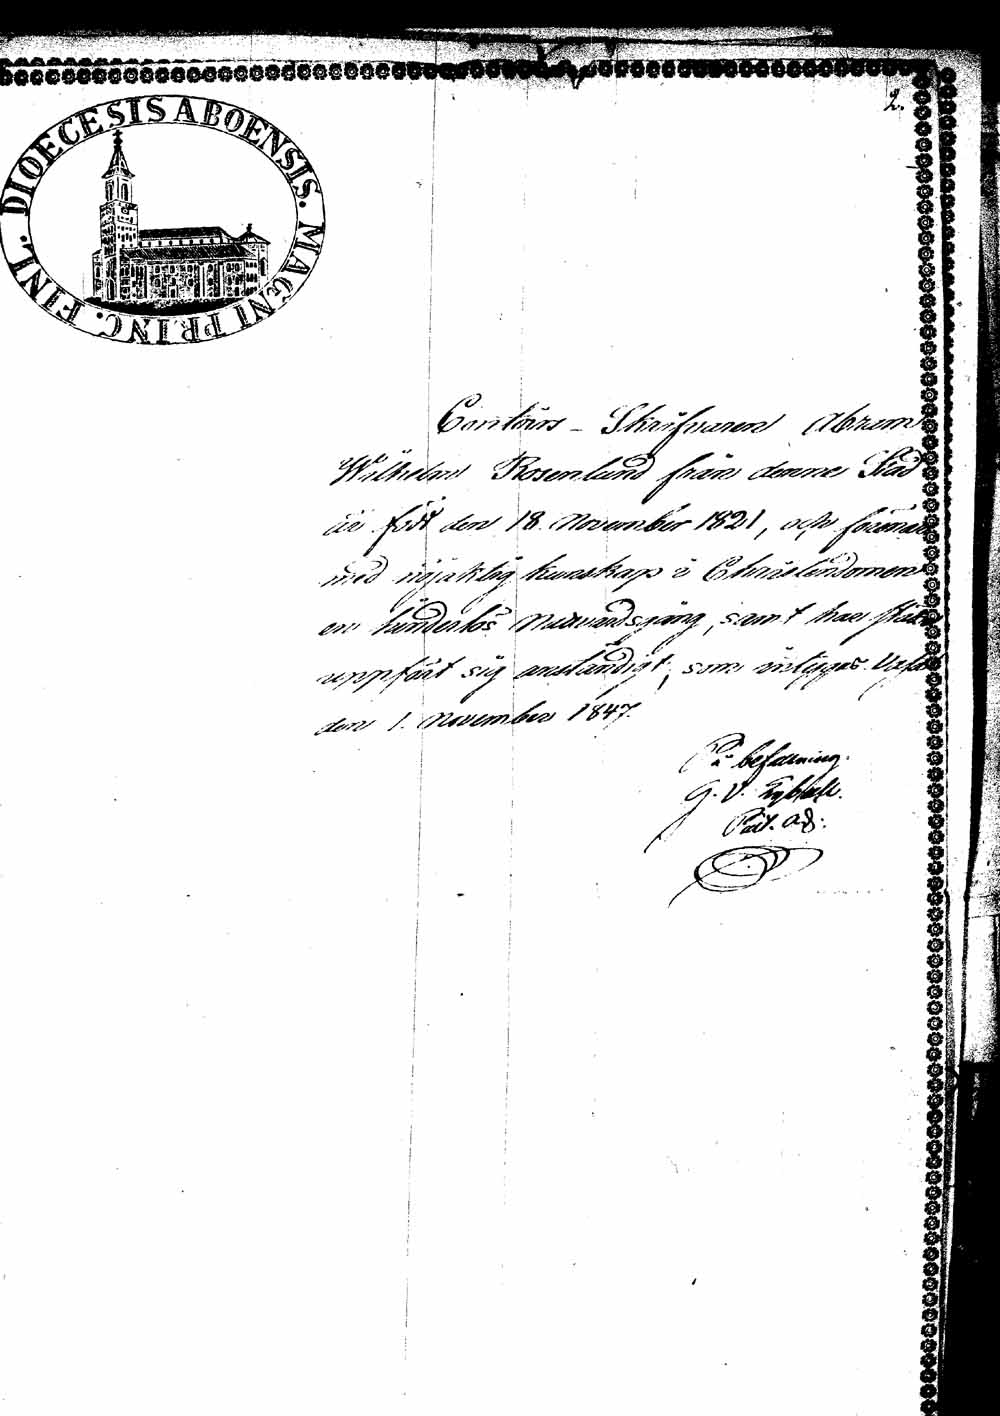 2.
DIOECESIS ABOENSIS. MAGNI PRINC. FINL.
Contoirs-Skrifvaren Abram
Wilhelm Rosenlund från denna Stad
är född den 18. November 1821, och förenar
med nöjaktig kunskap i Christendomen
en lofvärd vandel, samt har
uppfört sig anständigt, som intygas. Upsala
den 1. November 1847.
På befallning.
G. V.
Past. adj.